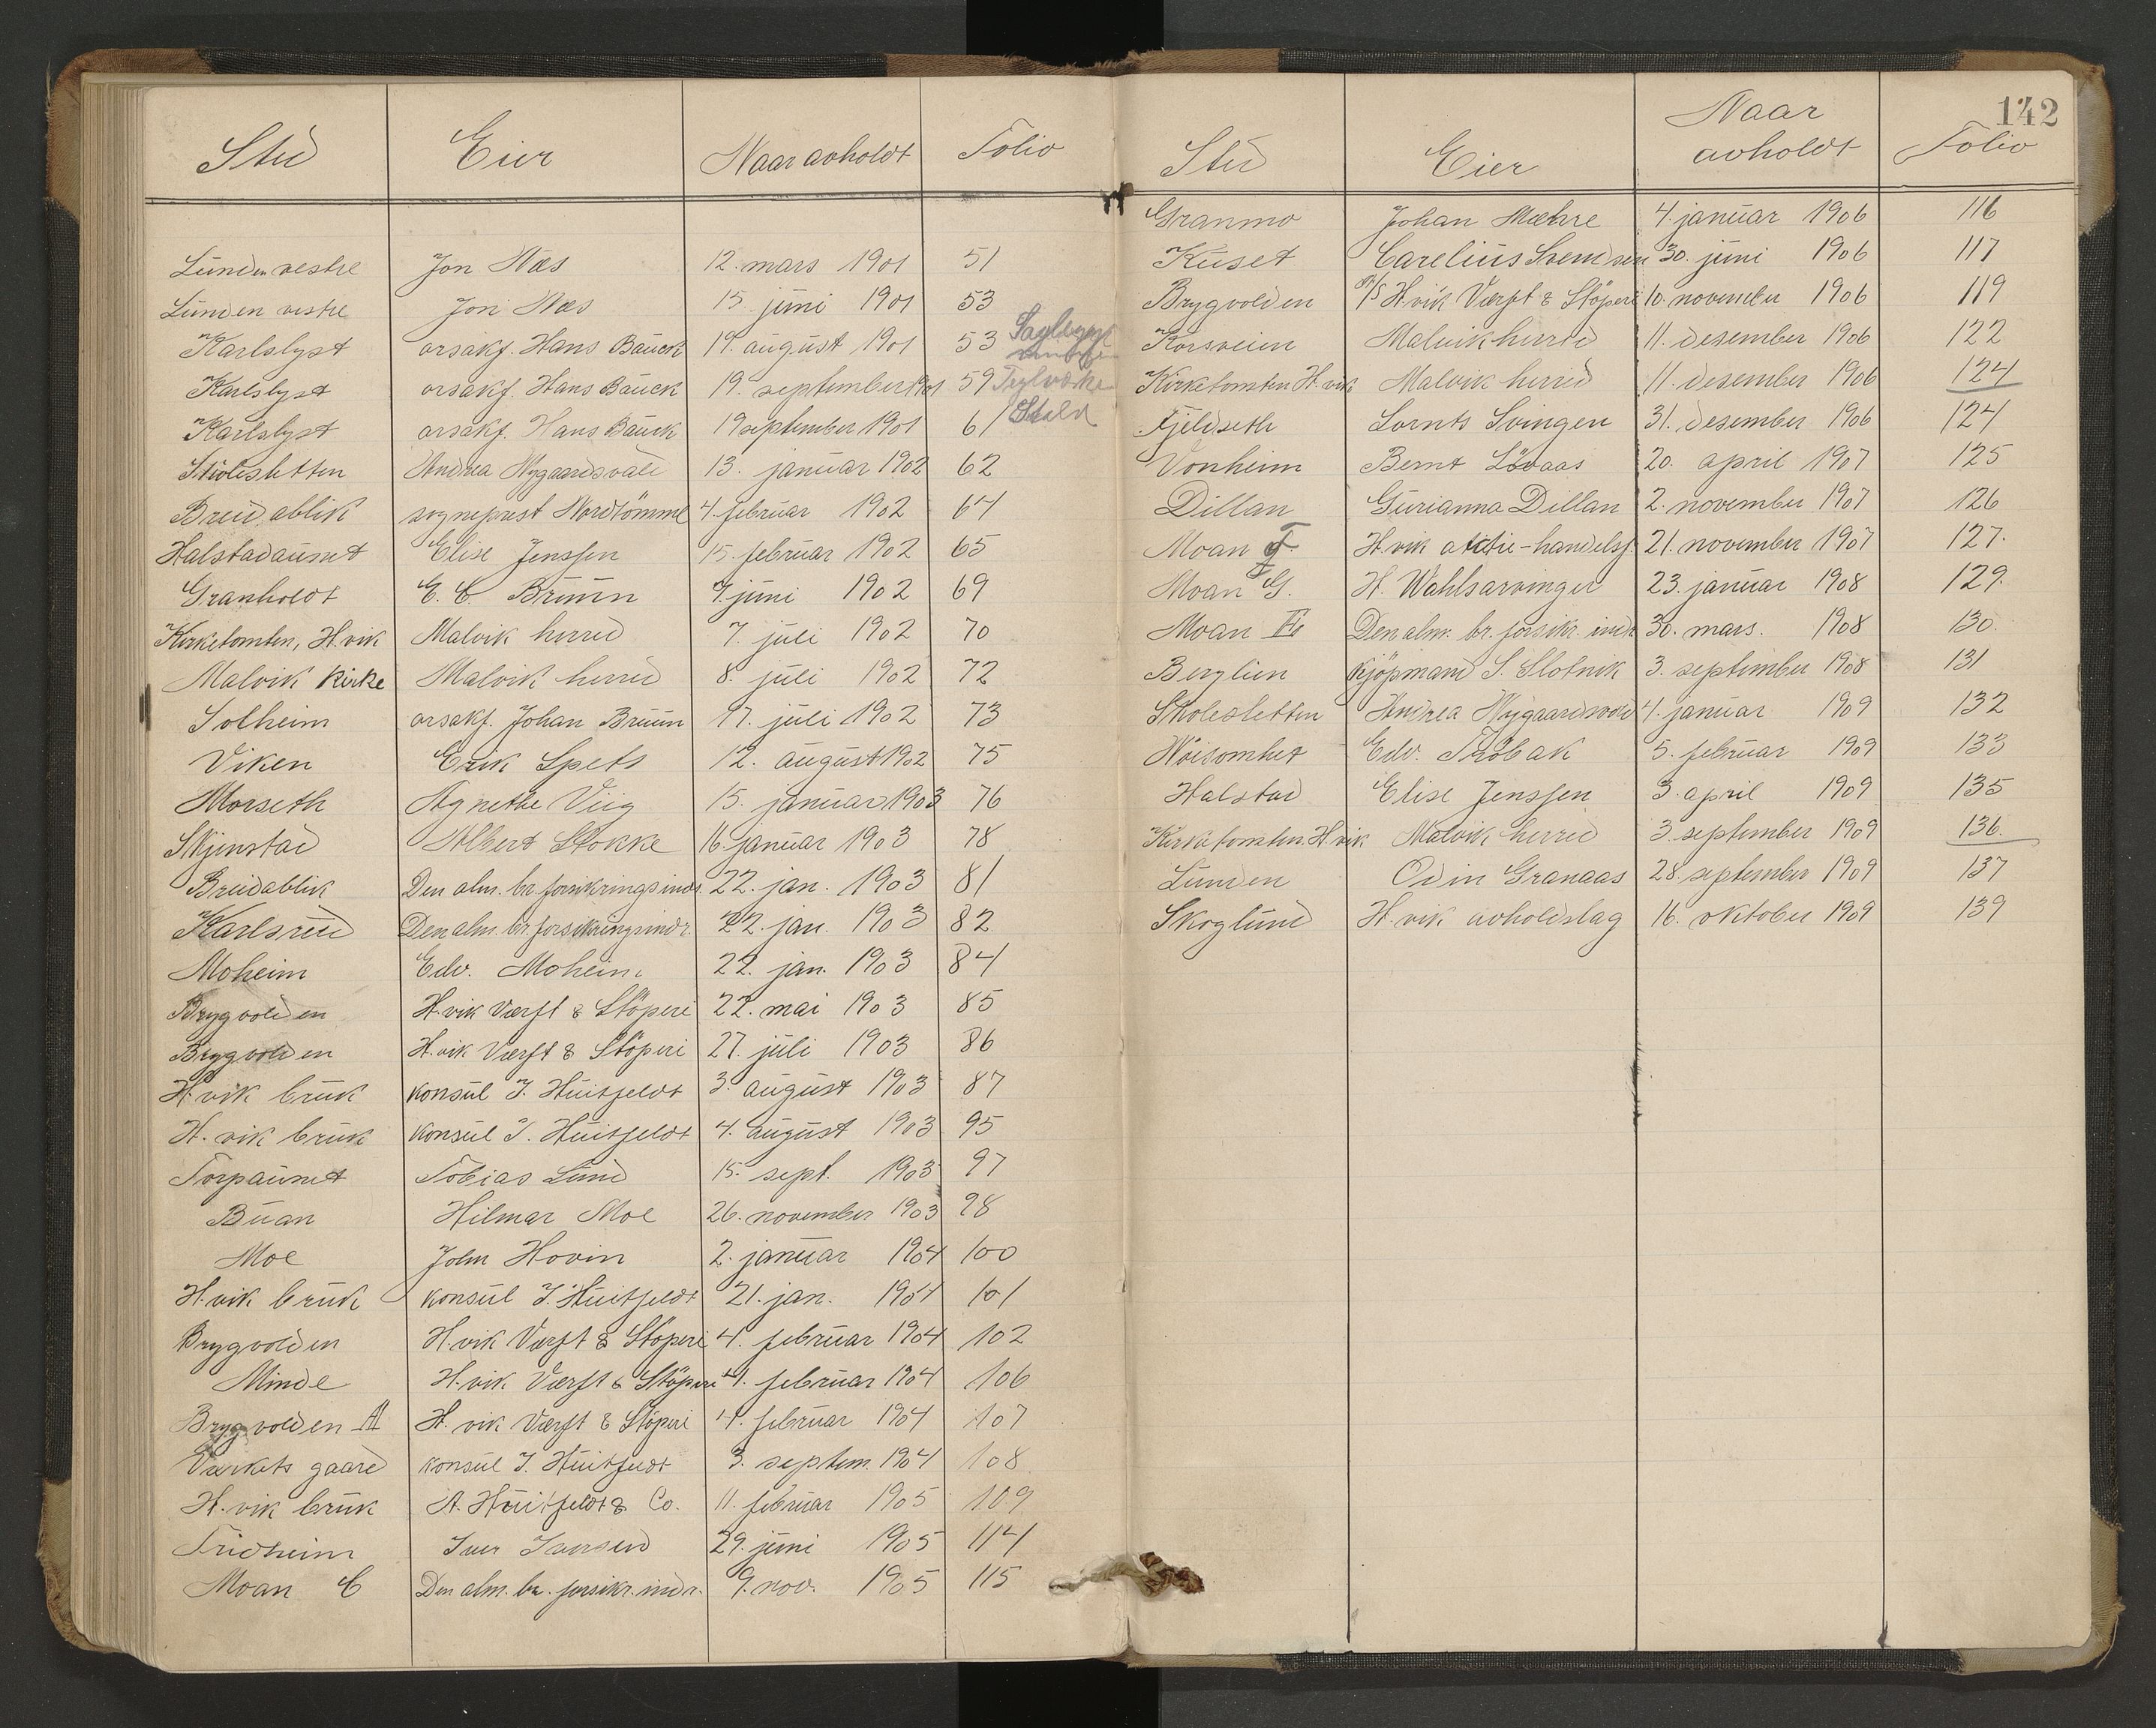 Sted Eier Naar avholdt Folio
Lunden vestre Jon Næs 12. mars 1901 51
Lunden vestre Jon Næs 15. juni 1901 53
Karlslyst orsakf. Hans Bauck 19. august 1901 53
Karlslyst orsakf. Hans Bauck 19. september 1901 59 Teglværke
Karlslyst orsakf. Hans Bauck 19 september 1901 61 Stald
Skolesletten Andrea Nygaardsvold 13. januar 1902 62
Breidablik sogneprest Nordtömme 4. februar 1902 64
Halstadaunet Elise Jenssen 15. februar 1902 65
Granholdt E. C. Bruun 7. juni 1902 69
Kirketomten, H.vik Malvik herred 7. juli 1902 70
Malvik Kirke Malvik herred 8. juli 1902 72
Solheim orsakf. Johan Bruun 17. juli 1902 73
Viken Erik Spets 12. august 1902 75
Morseth Agnethe Viig 15. januar 1903 76
Skjenstad Albert Stokke 16. januar 1903 78
Breidablik Den alm. br. forsikringsindr. 22. jan. 1903 81
Karlsrud Den alm. br. forsikringsindr. 22. jan. 1903 82
Moheim Edv. Moheim 22. jan. 1903 84
Brygvolden H.vik Værft & Stöperi 22. mai 1903 85
Brygvolden H.vik Værft & Stöperi 27. juli 1903 86
H.vik bruk konsul I. Huitfeldt 3. august 1903 87
H.vik bruk konsul I. Huitfeldt 4. august 1903 95
Torpaunet Tobias Lund 15. sept. 1903 97
Buan Hilmar Moe 26. november 1903 98
Moe John Hovin 2. januar 1904 100
H.vik bruk konsul I. Huitfeldt 21. jan. 1904 101
Brygvolden H.vik Værft & Stöperi 4. februar 1904 102
Minde H.vik Værft & Stöperi 4. februar 1904 106
Brygvolden A H.vik Værft & Stöperi 4. februar 1904 107
Værkets gaard konsul I. Huitfeldt 3. septem. 1904 108
H.vik bruk A. Huitfeldt & Co. 11. februar 1905 109
Fridheim Iver Iversen 29. juni 1905 114
Moan C Den alm. br. forsikr. indr. 9. nov. 1905 115
142
Sted Eier Naar avholdt Folio
Granmo Johan Mæhre 4. januar 1906 116
Kuset Carelius Svendsen 30. juni 1906 117
Brygvolden A/S H.vik Værft & Stöperi 10. november 1906 119
Korsveien Malvik herred 11. desember 1906 122
Kirketomten H.vik Malvik herred 11. desember 1906 124
Fjeldseth Lornts Svingen 31. desember 1906 124
Vonheim Bernt Lövaas 20. april 1907 125
Dillan Gurianna Dillan 2. november 1907 126
Moan F. H.vik aktie-handelsf. 21. november 1907 127.
Moan G. H. Wahlsarvinger 23. januar 1908 129.
Moan Den alm. br. forsikr. indr 30. mars. 1908 130.
Berglien kjöpmand S. Slotnik 3. september 1908 131
Skolesletten Andrea Nygaardsvold 4. januar 1909 132
Nöisomhet Edv. Fröbak 5. februar 1909 133
Halstad Elise Jenssen 3. april 1909 135
Kirketomten H.vik Malvik herred 3. september 1909 136.
Lunden Odin Granaas 28. september 1909 137
Skoglund H.vik avholdslag 16. oktober 1909 139